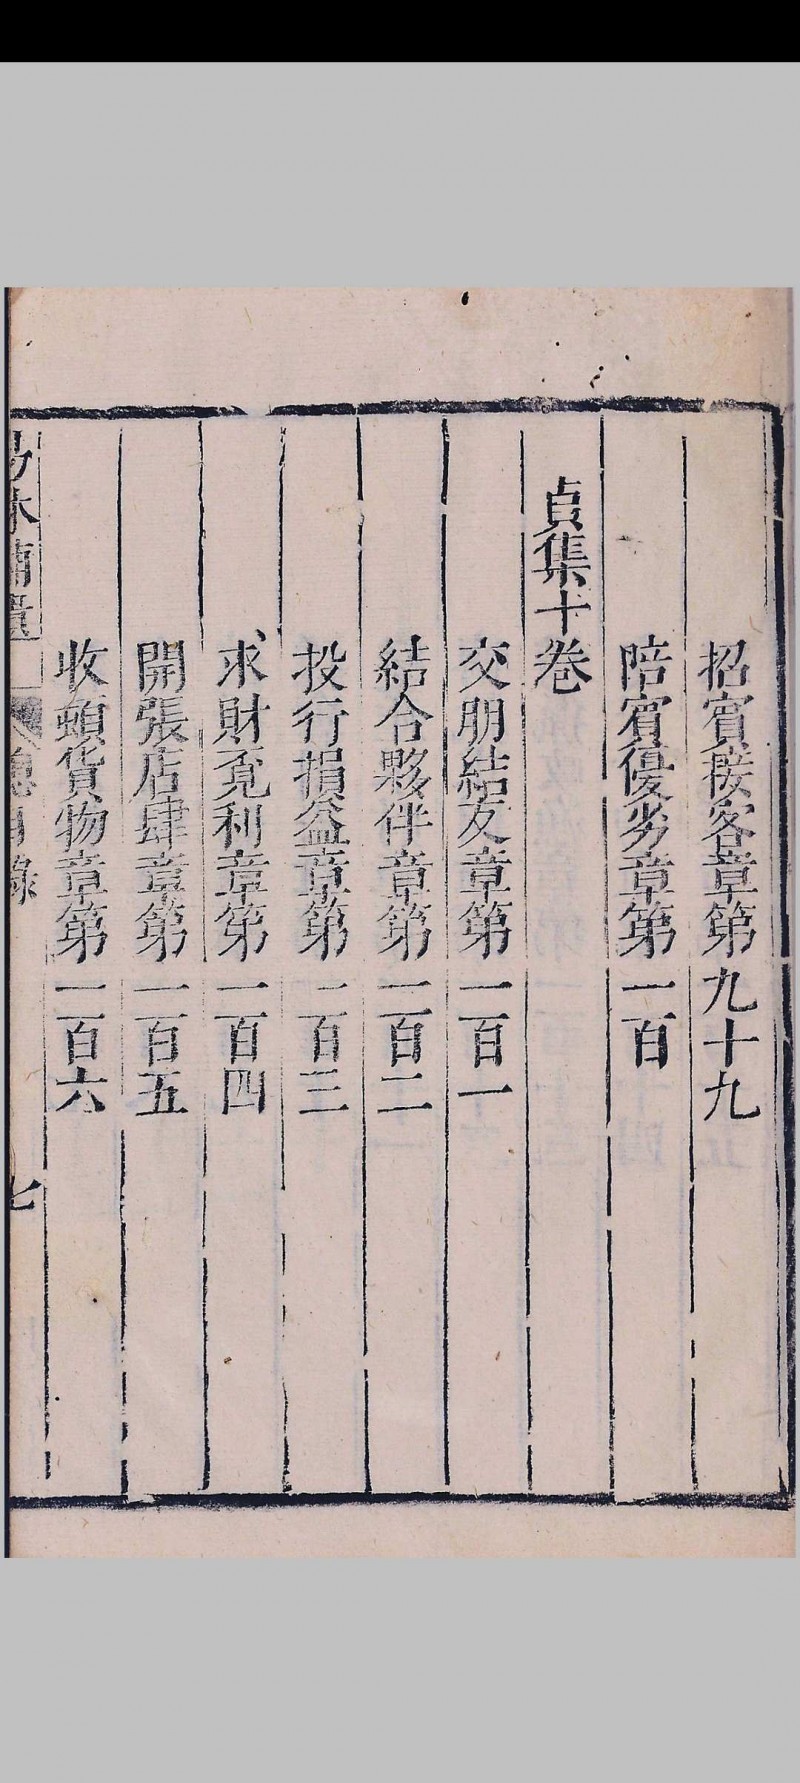 招賓接客章第九十九
陪賓優劣章第一百
貞集十卷
交朋結友章第一百一
結合夥伴章第一百二
投行損益章第一百三
求財覓利章第一百四
開張店肆章第一百五
收頓貨物章第一百六
易林補遺 總目錄 七